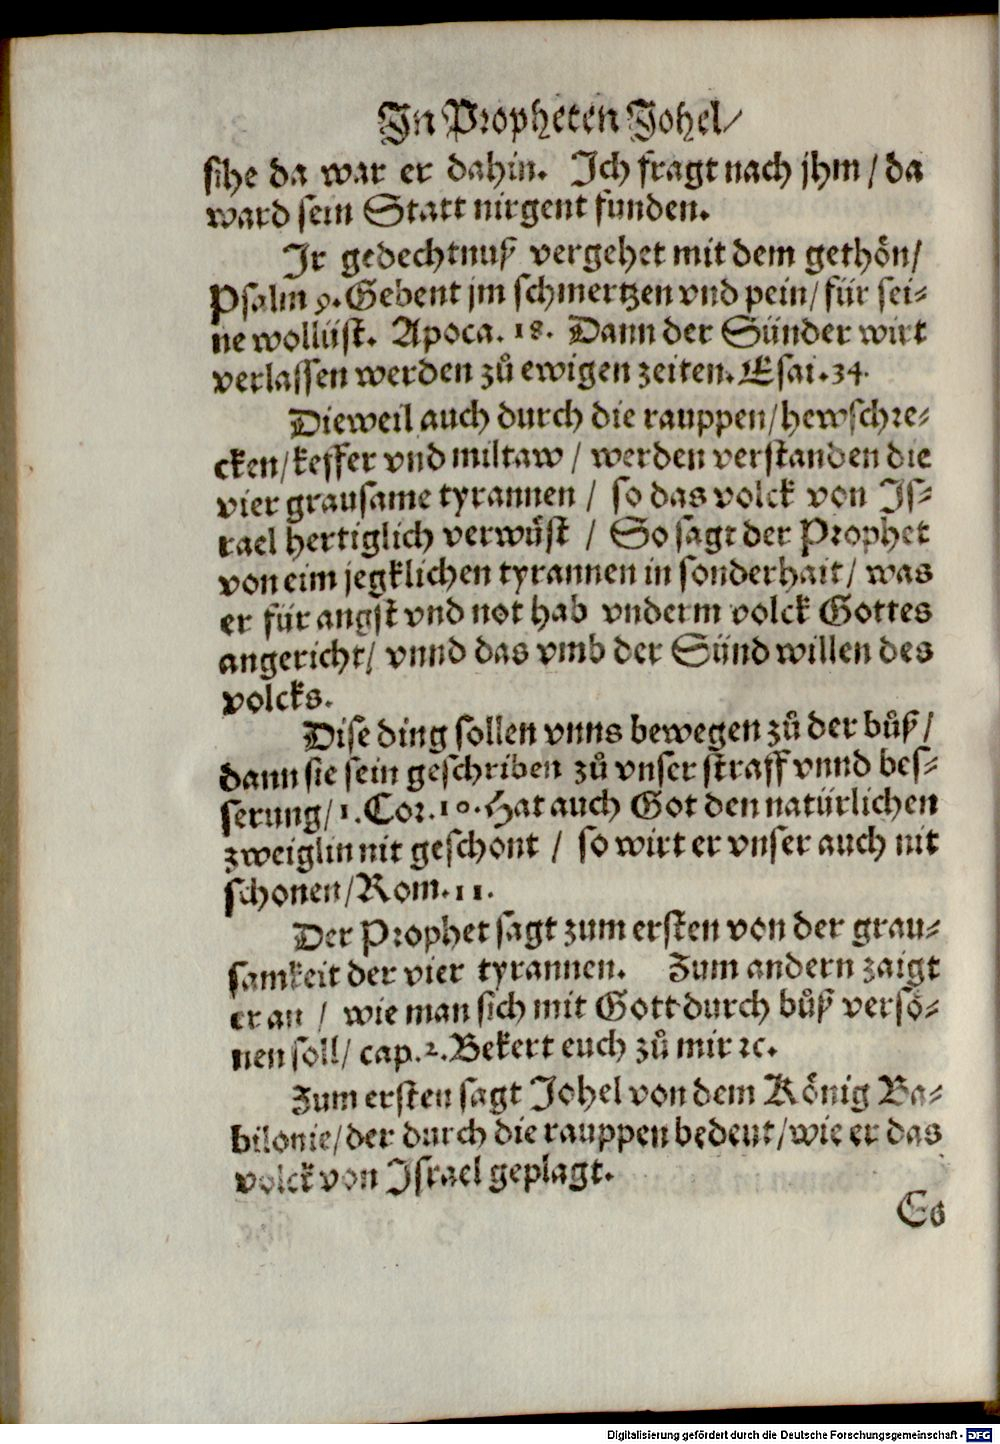 In Propheten Johel/
sihe da war er dahin. Ich fragt nach jhm / da
ward sein Statt nirgent funden.
Ir gedechtnuß vergehet mit dem gethön/
Psalm 9. Gebent jm schmertzen vnd pein/ für sei-
ne wollüst. Apoca. 18. Dann der Sünder wirt
verlassen werden zů ewigen zeiten. Esai. 34.
Dieweil auch durch die rauppen/ hewschre-
cken/ keffer vnd miltaw / werden verstanden die
vier grausame tyrannen / so das volck von Is-
rael hertiglich verwůst / So sagt der Prophet
von eim jegklichen tyrannen in sonderhait/ was
er für angst vnd not hab vnderm volck Gottes
angericht/ vnnd das vmb der Sünd willen des
volcks.
Dise ding sollen vnns bewegen zů der bůß /
dann sie sein geschriben zů vnser straff vnnd bes-
serung/ 1. Cor. 10. Hat auch Got den natürlichen
zweiglin nit geschont / so wirt er vnser auch nit
schonen/ Rom. 11.
Der Prophet sagt zum ersten von der grau-
samkeit der vier tyrannen. Zum andern zaigt
er an / wie man sich mit Gott durch bůß versö-
nen soll/ cap. 2. Bekert euch zů mir ꝛc.
Zum ersten sagt Johel von dem König Ba-
bilonie/ der durch die rauppen bedeut/ wie er das
volck von Israel geplagt.
Es
Digitalisierung gefördert durch die Deutsche Forschungsgemeinschaft - DFG